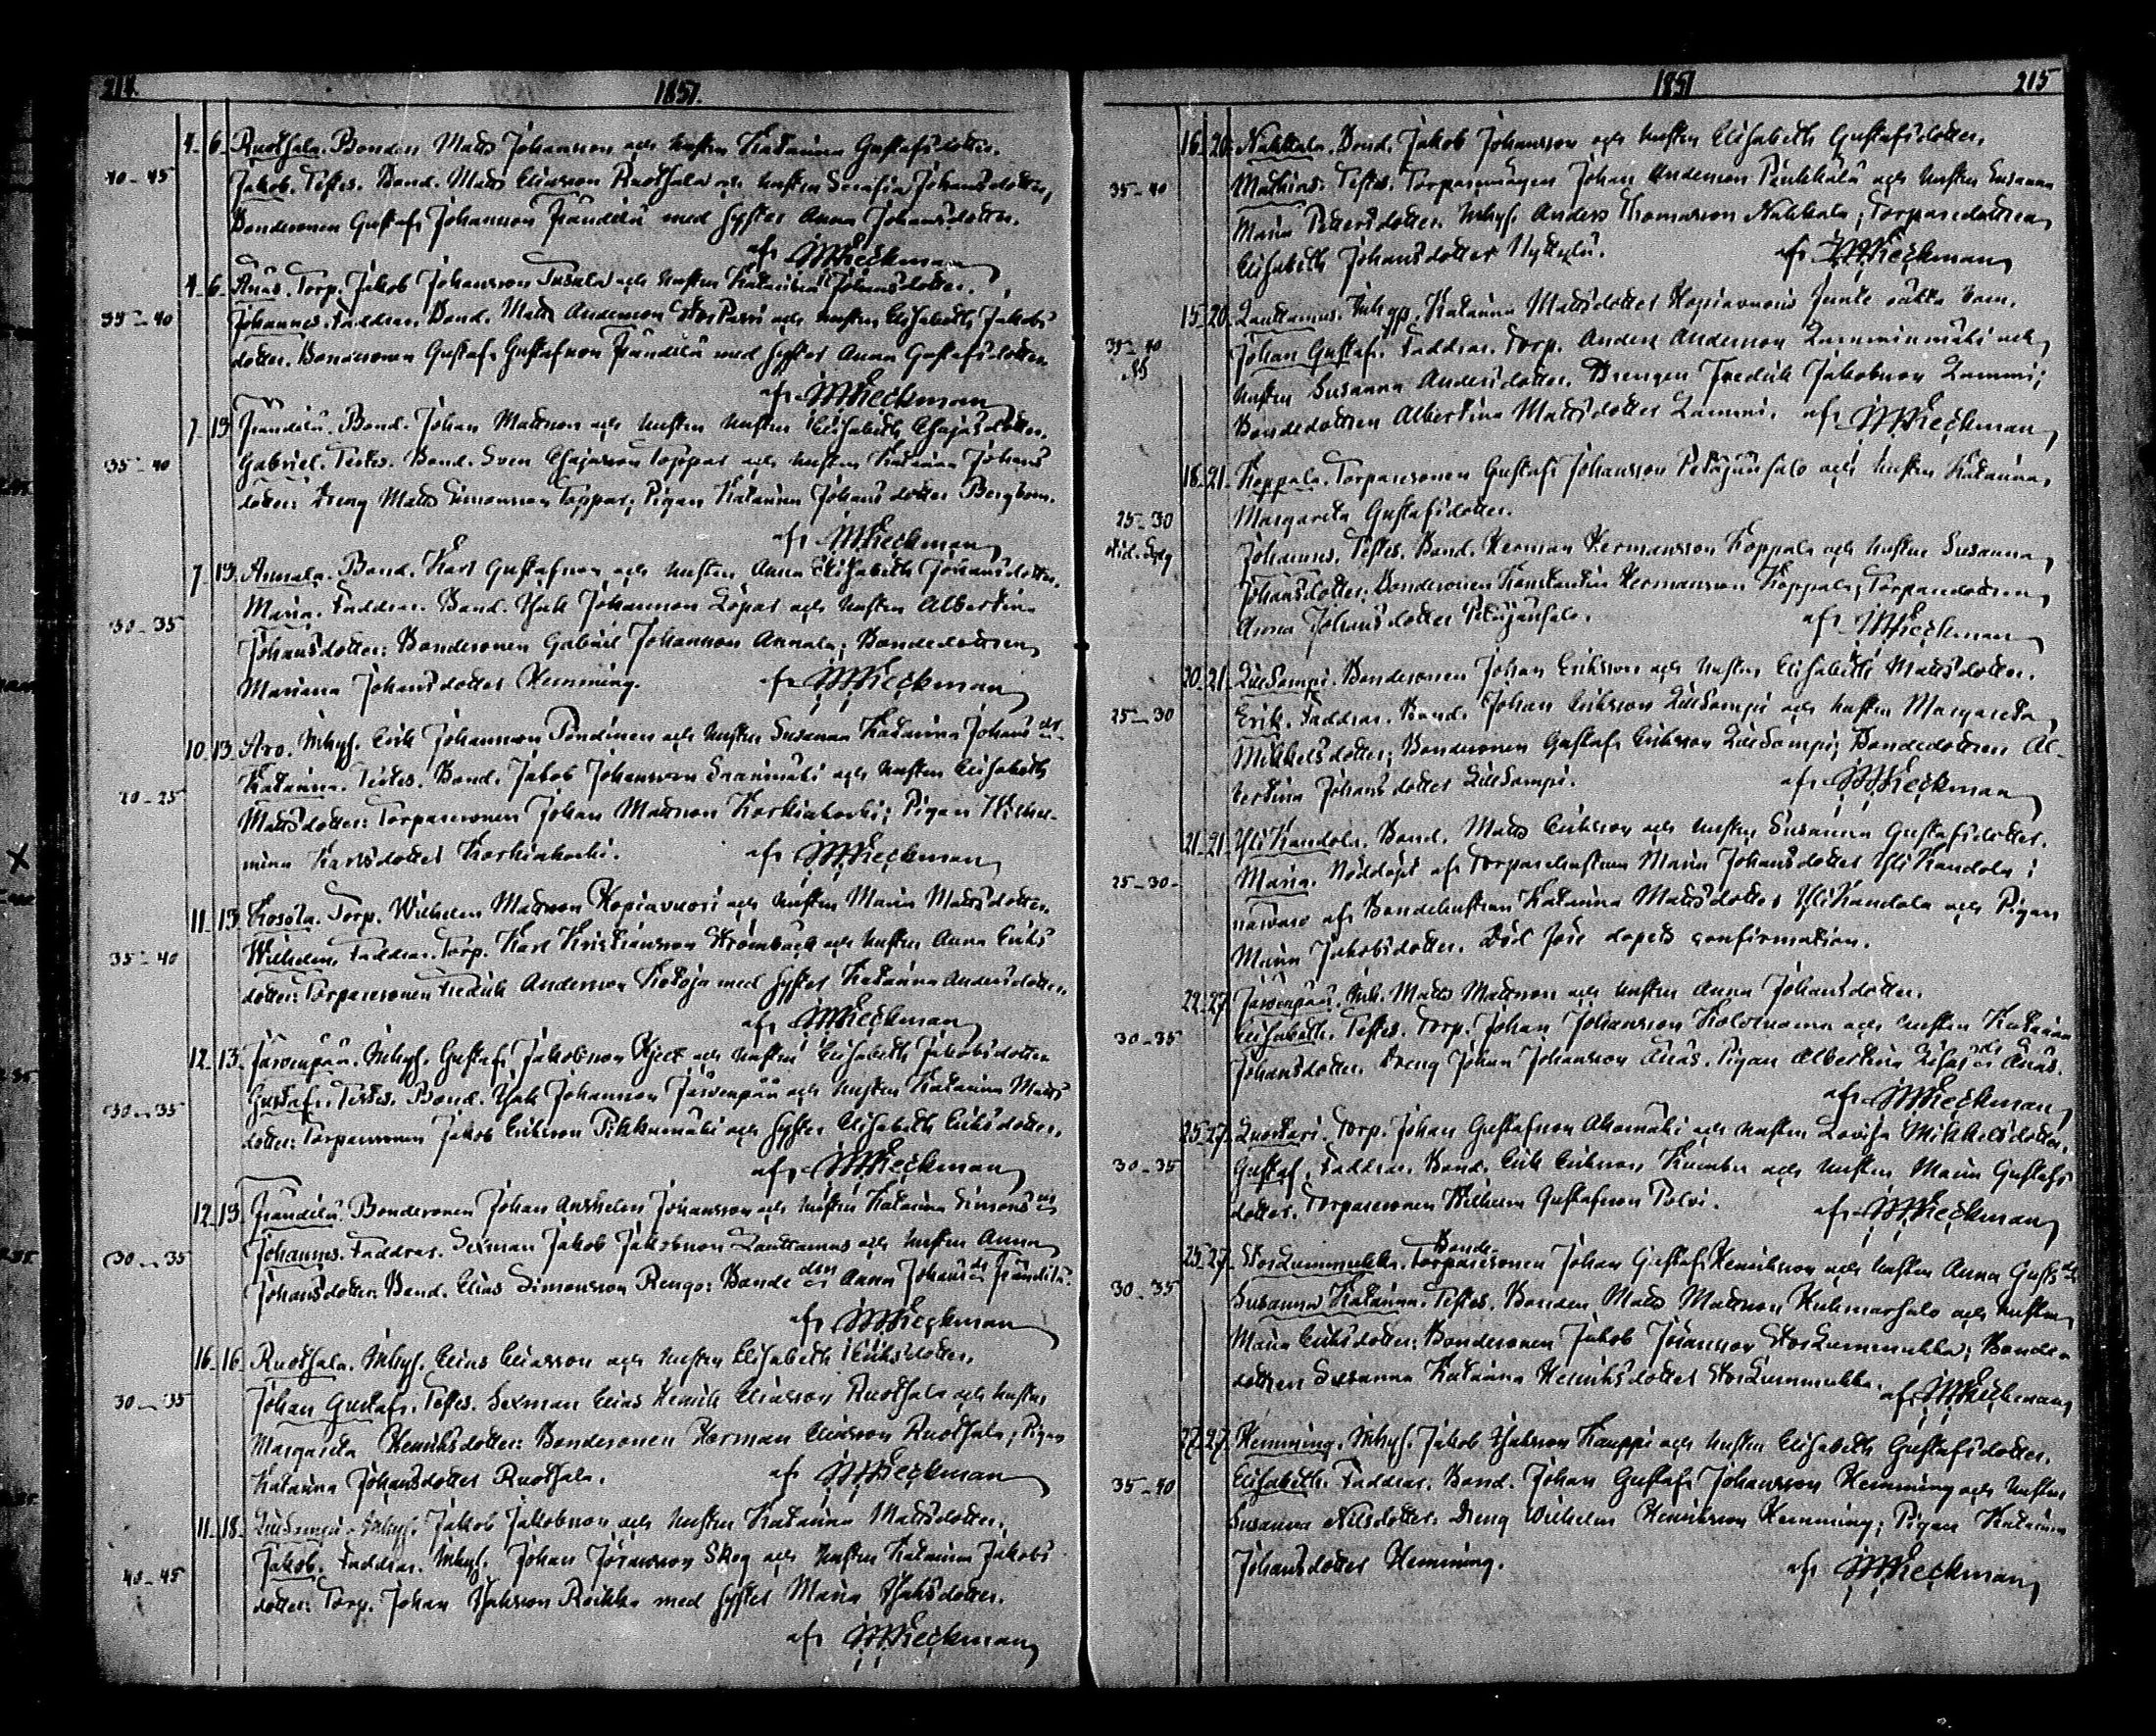 214. 1857.
4. 6. Ruothala. Bonden Matts Johansson och hustru Katarina Gustafsdotter.
40-45 Jakob. Testes. Bond. Matts Eliasson Ruothala och hustru Serafia Johansdotter,
Bondesonen Gustaf Johansson Frändilä med syster Anna Johansdotter.
af Heckman
4. 6. Anäs. Torp. Jakob Johansson Tusula och hustru Katarina Johansdotter.
35-40 Johannes. Faddrar. Bond. Matts Anderson StorPassi och hustru Elisabeth Jakobs
dotter. Bondesonen Gustaf Gustafsson Frändilä med syster Anna Gustafsdotter.
af Heckman
7. 13. Frändilä. Bond. Johan Mattsson och hustru hustru Elisabeth Esajasdotter.
35-40 Gabriel. Testes. Bond. Sven Esajasson Toppar och hustru Katarina Johans
dotter: Dreng Matts Simonsson Toppar; Pigan Katarina Johansdotter Bergbom.
af Heckman
7. 13. Annala. Bond. Karl Gustafsson och hustru Anna Elisabeth Johansdotter.
30-35 Maria. Faddrar. Bond. Isak Johansson Löpas och hustru Albertina
Johansdotter: Bondesonen Gabriel Johansson Annala; Bondedottren
Mariana Johansdotter Hemming. af Heckman
10. 13. Aro. Inhys. Erik Johansson Pendinen och hustru Susanna Katarina Johansdr
20-25 Katarina. Testes. Bond. Jakob Johansson Granimäki och hustru Elisabeth
Mattsdotter: Torparesonen Johan Mattsson Korkiakoski; Pigan Wilhel-
mina Karlsdotter Korkiakoski. af Heckman
11. 13. Kosola. Torp. Wilhelm Mattsson Hopiavuori och hustru Maria Mattsdotter.
35-40 Wilhelm. Faddrar. Torp. Karl Kristiansson Strömbäck och hustru Anna Eriks
dotter: Torparesonen Fredrik Anderson Ketoja med syster Katarina Andersdotter.
af Heckman
12. 13. Järvenpää. Inhys. Gustaf Jakobsson och hustru Elisabeth Jakobsdotter
30-35 Gustaf. Testes. Bond. Isak Johansson Järvenpää och hustru Katarina Matts
dotter: Torparesonen Jakob Eriksson Pikkumäki och syster Elisabeth Eriksdotter.
af Heckman
12. 13. Frändilä. Bondesonen Johan Anshelm Johansson och hustru Katarina Simonsdr
30-35 Johannes. Faddrar. Sexman Jakob Jakobsson Lauttamus och hustru Anna
Johansdotter: Bond. Elias Simonsson Rengo: Bondedren Anna Johansdr Frändilä.
af Heckman
16. 16. Ruothala. Inhys. Elias Eliasson och hustru Elisabeth Eriksdotter.
30-35 Johan Gustaf. Testes. Sexman Elias Henrik Eliasson Ruothala och hustru
Margareta Henriksdotter: Bondesonen Herman Eliasson Ruothala; Pigan
Katarina Johansdotter Ruothala. af Heckman
11. 18. Inhys. Jakob Jakobsson och hustru Katarina Mattsdotter.
40-45 Jakob. Faddrar. Inhys. Johan Johansson Skog och hustru Katarina Jakobs
dotter: Torp. Johan Isaksson Roikka med syster Maria Isaksdotter.
af Heckman
1857 215
16. 20. Nahkala. Bond. Jakob Johansson och hustru Elisabeth Gustafsdotter.
35-40 Mathias. Testes. Torparemågen Johan Anderson Penkkala och hustru Susanna
Maria Pettersdotter. Inhys. Anders Thomasson Nahkala; Torparedottren
Elisabeth Johansdotter Nykylä. af Heckman
15. 20. Lauttamus. Inhys. Katarina Mattsdotter Hopiavuoris Junte oäkta barn.
35-40 Johan Gustaf. Faddrar. Torp. Anders Anderson Lamminmäki och
hustru Susanna Andersdotter. Drengen Fredrik Jakobsson Lammi;
Bondedottren Albertina Mattsdotter Lammi. af Heckman
18. 21. Koppala. Torparesonen Gustaf Johansson Petäjänsalo och hustru Katarina
25-30 Margareta Gustafsdotter.
Johannes. Testes. Bond. Herman Hermansson Koppala och hustru Susanna
Johansdotter: Bondesonen Konstantin Hermansson Koppala; Torparedottren
Anna Johansdotter Petäjänsalo. af Heckman
20. 21. LillSompi. Bondesonen Johan Eriksson och hustru Elisabeth Mattsdotter.
25-30 Erik. Faddrar. Bond. Johan Eriksson LillSompi och hustru Margareta
Mikkelsdotter; Bondesonen Gustaf Eriksson LillSompi; Bondedottren Al-
bertina Johansdotter LillSompi. af Heckman
21. 21. YliKandola. Bond. Matts Eriksson och hustru Susanna Gustafsdotter.
25-30 Maria. Nöddöpt af Torparehustrun Maria Johansdotter YliKandola i
närvaro af Bondehustrun Katarina Mattsdotter YliKandola och Pigan
Maria Jakobsdotter. Död före dopets confirmation.
22. 27. Järvenpää. Inh. Matts Mattsson och hustru Anna Johansdotter.
30-35 Elisabeth. Testes. Torp. Johan Johansson Koivenoma och hustru Katarina
Johansdotter. Dreng Johan Johansson Anäs. Pigan Albertina Anäs.
af Heckman
25. 27. Luostari. Torp. Johan Gustafsson Ahomäki och hustru Lovisa Mikkelsdotter.
30-35 Gustaf. Faddrar. Bond. Erik Eriksson och hustru Maria Gustafs
dotter. Torparesonen Wilhelm Gustafsson Polvi. af Heckman
25. 27. StorLummukka. Bondesonen Johan Gustaf Henriksson och hustru Anna Gustsdr
30-35 Susanna Katarina. Testes. Bonden Matts Mattsson Kuhmarsalo och hustru
Maria Eriksdotter: Bondesonen Jakob Johansson StorLummukka; Bonde-
dottren Susanna Katarina Henriksdotter StorLummukka. af Heckman
27. 27. Hemming. Inhys. Jakob Isaksson Kauppi och hustru Elisabeth Gustafsdotter.
35-40 Elisabeth. Faddrar. Bond. Johan Gustaf Johansson Hemming och hustru
Susanna Nilsdotter. Dreng Wilhelm Henriksson Hemming; Pigan Katarina
Johansdotter Hemming. af Heckman